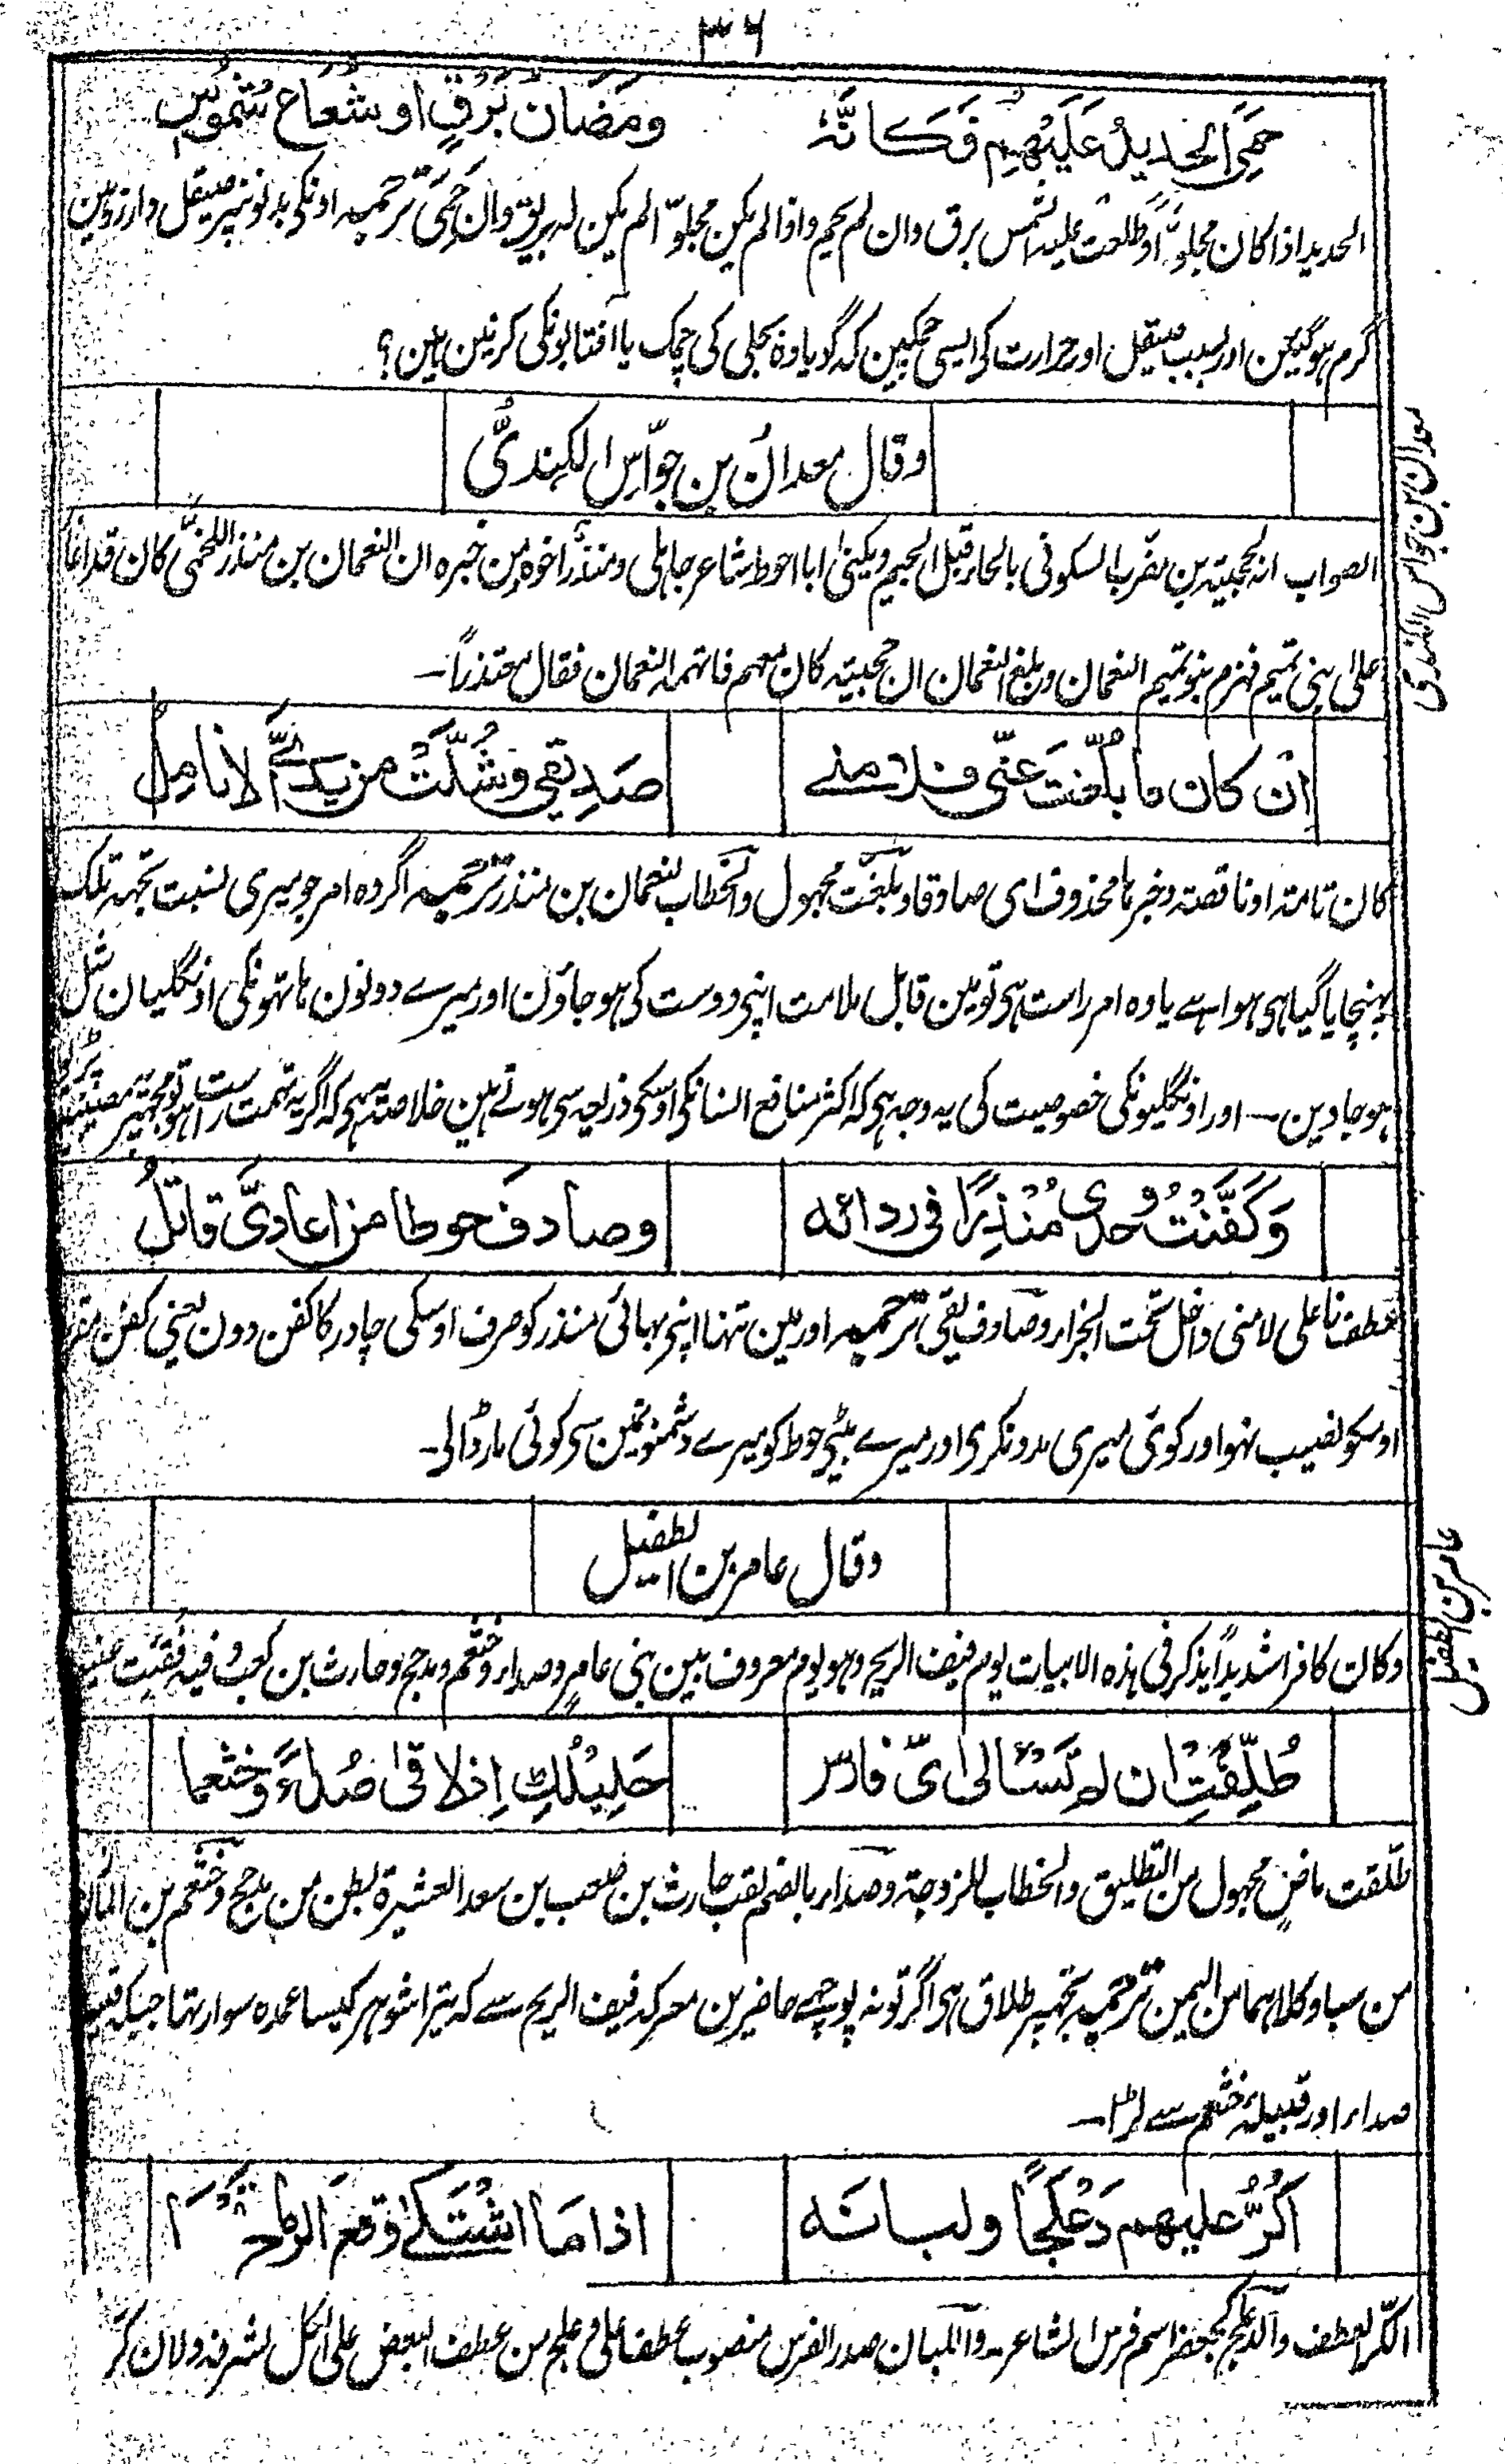 ۳۶
حَمِيَ الحديدُ عَلَيْهِم فَكَانَّهُ ومَضَانُ بَرْقٍ او شُعَاعُ شُمُوسٍ
الحدید اذا کان مجلوًّا وطلعت علیه الشمس برق وان لم یحم واذا لم یکن مجلوًّا لم یکن له بریق وان حَمِیَ ترجمہ اونکی بدنونپر صیقل دار زرہین
گرم ہوگئین اور بسبب صیقل اور حرارت کی ایسی چمکین کہ گویا وہ بجلی کی چمک یا آفتابونکی کرنین ہین ؟
وقال معدانُ بن جوّاسِ الکِندیُّ
الصواب انہ لحجیة بن مضرب السکونی بالحاء قبل الجیم ویکنی ابا احوط شاعر جاہلی ومنذر اخوہ من خبرہ ان النعمان بن منذر اللخمی کان قد اغا
علی بنی تمیم فہزم بنو تمیم النعمان وبلغ النعمان ان حجیة کان معہم فاتہمہ النعمان فقال معتذراً۔
اِنْ كان ما بُلّغتَ عنّى فلامني صَدِيقي وشُلَّتْ من يدَيَّ الانامِلُ
کان تامة او ناقصة وخبرہا محذوف ای صادقا وبلغت مجہول والخطاب لنعمان بن منذر ترجمہ اگر وہ امر جو میری نسبت تجہہ تلک
پہنچایا گیا ہی ہوا ہے یا وہ امر راست ہی تو مین قابل ملامت اپنی دوست کی ہوجاؤن اور میرے دونون ہاتہونکی اونگلیان شل
ہوجاوین ۔ اور اونگلیونکی خصوصیت کی یہ وجہ ہی کہ اکثر منافع انسانکی اوسکی ذریعہ سی ہوتے ہین خلاصہ یہی کہ اگر یہ تہمت راست ہو تو مجہپر مصیبتین پڑین
وَكَفَّنتُ وحدى مُنْذِرًا في ردائه وصادفَ حوطا من اعاديَّ قاتِلُ
عطفنا علی لامنی داخل تحت الجزاء وصادف لقی ترجمہ اور مین تنہا اپنی بہائی منذر کو صرف اوسکی چادر کا کفن دون یعنی کفن مقر
اوسکو نصیب نہو اور کوئی میری مدد نکری اور میرے بیٹی حوط کو میرے دشمنونمین سی کوئی مار ڈالی۔
وقال عامر بن الطفیل
وکان کافرا شدیداً یذکر فی ہذہ الابیات یوم فیف الریح وہو یوم معروف بین بنی عامرٍ وصداء وخثعم ومذحج وحارث بن کعب وفیہ فقئت عینہ
طُلِّقْتِ ان لم تَسْأَلى اىّ فارس حَلِيْلُكِ اِذ لاقى صُداءً وخثعما
طلّقت ماضٍ مجہول من التطلیق والخطاب للزوجة وصداء بالضم لقب حارث بن صعب بن سعد العشیرة بطن من مذحج وخثعم بن انمار
من سبا وکلاہما من الیمن ترجمہ تجہپر طلاق ہی اگر تو نہ پوچہے حاضرین معرکہ فیف الریح سے کہ تیرا شوہر کیسا عمدہ سوار تہا جبکہ قبیلہ
صداء اور قبیلہ خثعم سے لڑا۔
اَكُرُّ عليهم دَعْلَجًا ولبانَه اذا مَا اشْتَكىٰ وقعَ الرِّماحِ
الکرّ العطف والدعلج کجعفر اسم فرس الشاعر واللبان صدر الفرس منصوب عطفا علی دعلج من عطف البعض علی الکل لشرفہ ولان کر
معدان بن جواس الکندی
عامر بن الطفیل